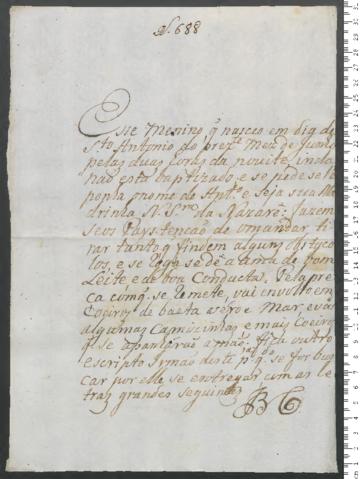 N. 688
Este Menino q̃ nasceo em dia de
S.to Antonio do prez.te Mez de Junho
pelas duas horas da noute, inda
naõ está baptizado e se pede se lhe
ponha o nome de Ant.o e seja sua Ma
drinha N. Snr.a da Nazare: fazem
seus Pays tencaõ de o mandar ti
rar tanto q̃ findem alguns obstaco
los, e se roga se dê a Ama de bom
Leite e de boa Conducta. Pela pre
ca com q̃ se remete, vai envolto em
Coeiros de baeta
algumas Camizinhas e mais Coeiros
q̃ se apanharaõ a maõ. fica outro
escripto Irmaõ deste p.a q.do se for bus
car por elle se entregar com as le
tras grandes seguintes
B C